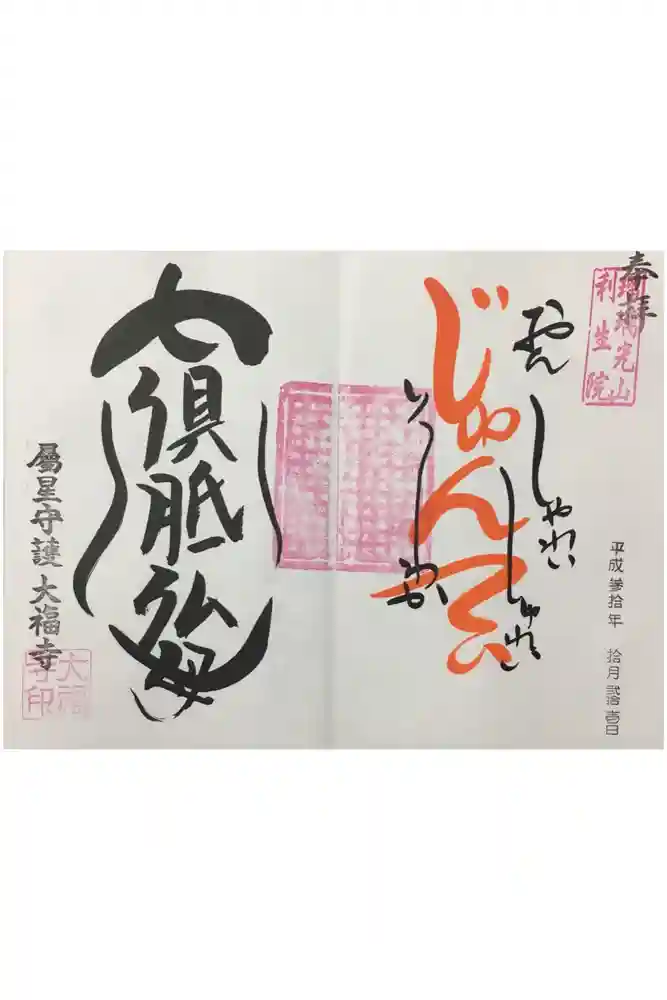 奉拝
瑠璃光山
利生院
平成参拾年 拾月弐拾壱日
おん
しゃれい
しゅれい
じゅんてい
そわか
七俱胝仏母
屬星守護 大福寺
大福
寺印